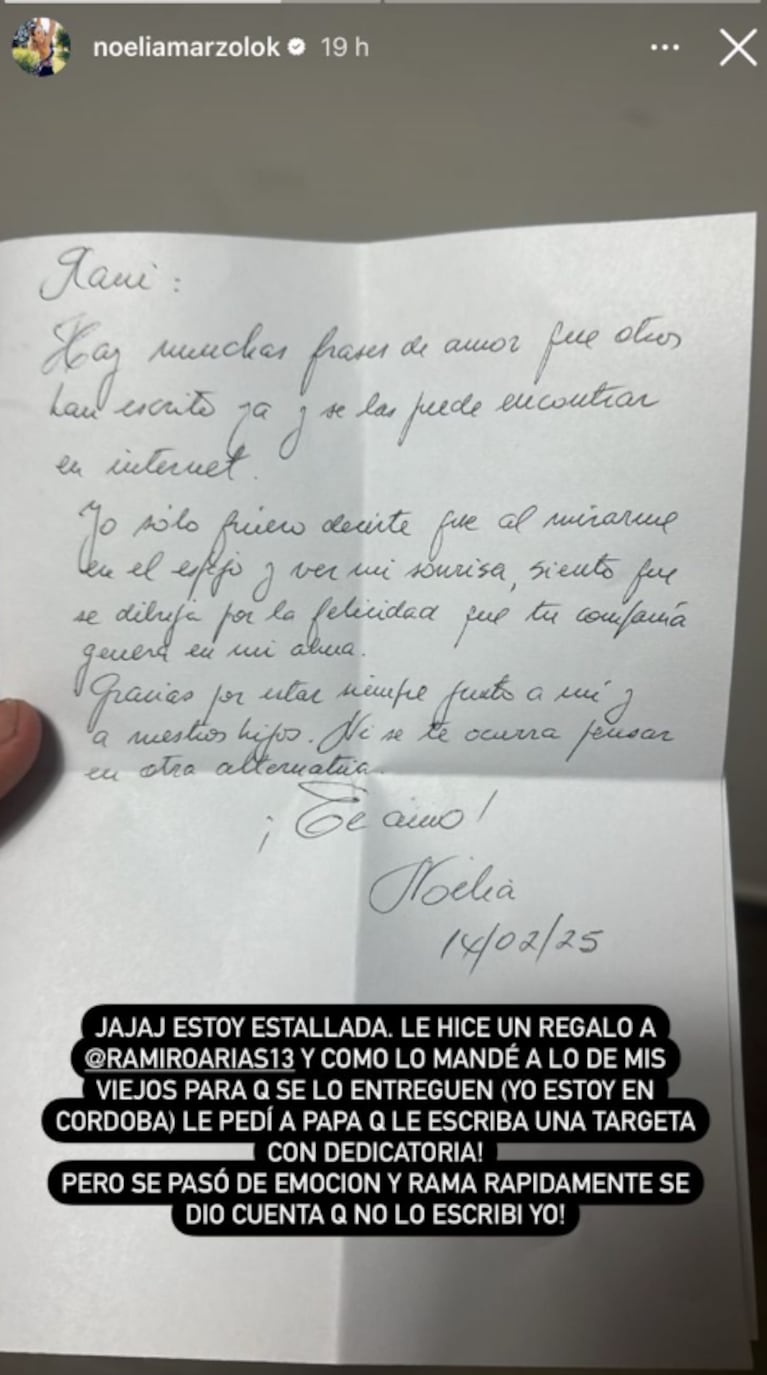 noeliamarzolok 19 h
Rami :
Hay munchas frases de amor que otros
han escrito ya y se las puede encontrar
en internet.
Yo sólo quiero decirte que al mirarme
en el espejo y ver mi sonrisa, siento que
se dibuja por la felicidad que tu compañía
genera en mi alma.
Gracias por estar siempre junto a mí y
a nuestros hijos. Ni se te ocurra pensar
en otra alternativa.
¡Te amo!
Noelia
14/02/25
JAJAJ ESTOY ESTALLADA. LE HICE UN REGALO A
@RAMIROARIAS13 Y COMO LO MANDÉ A LO DE MIS
VIEJOS PARA Q SE LO ENTREGUEN (YO ESTOY EN
CORDOBA) LE PEDÍ A PAPA Q LE ESCRIBA UNA TARGETA
CON DEDICATORIA!
PERO SE PASÓ DE EMOCION Y RAMA RAPIDAMENTE SE
DIO CUENTA Q NO LO ESCRIBI YO!